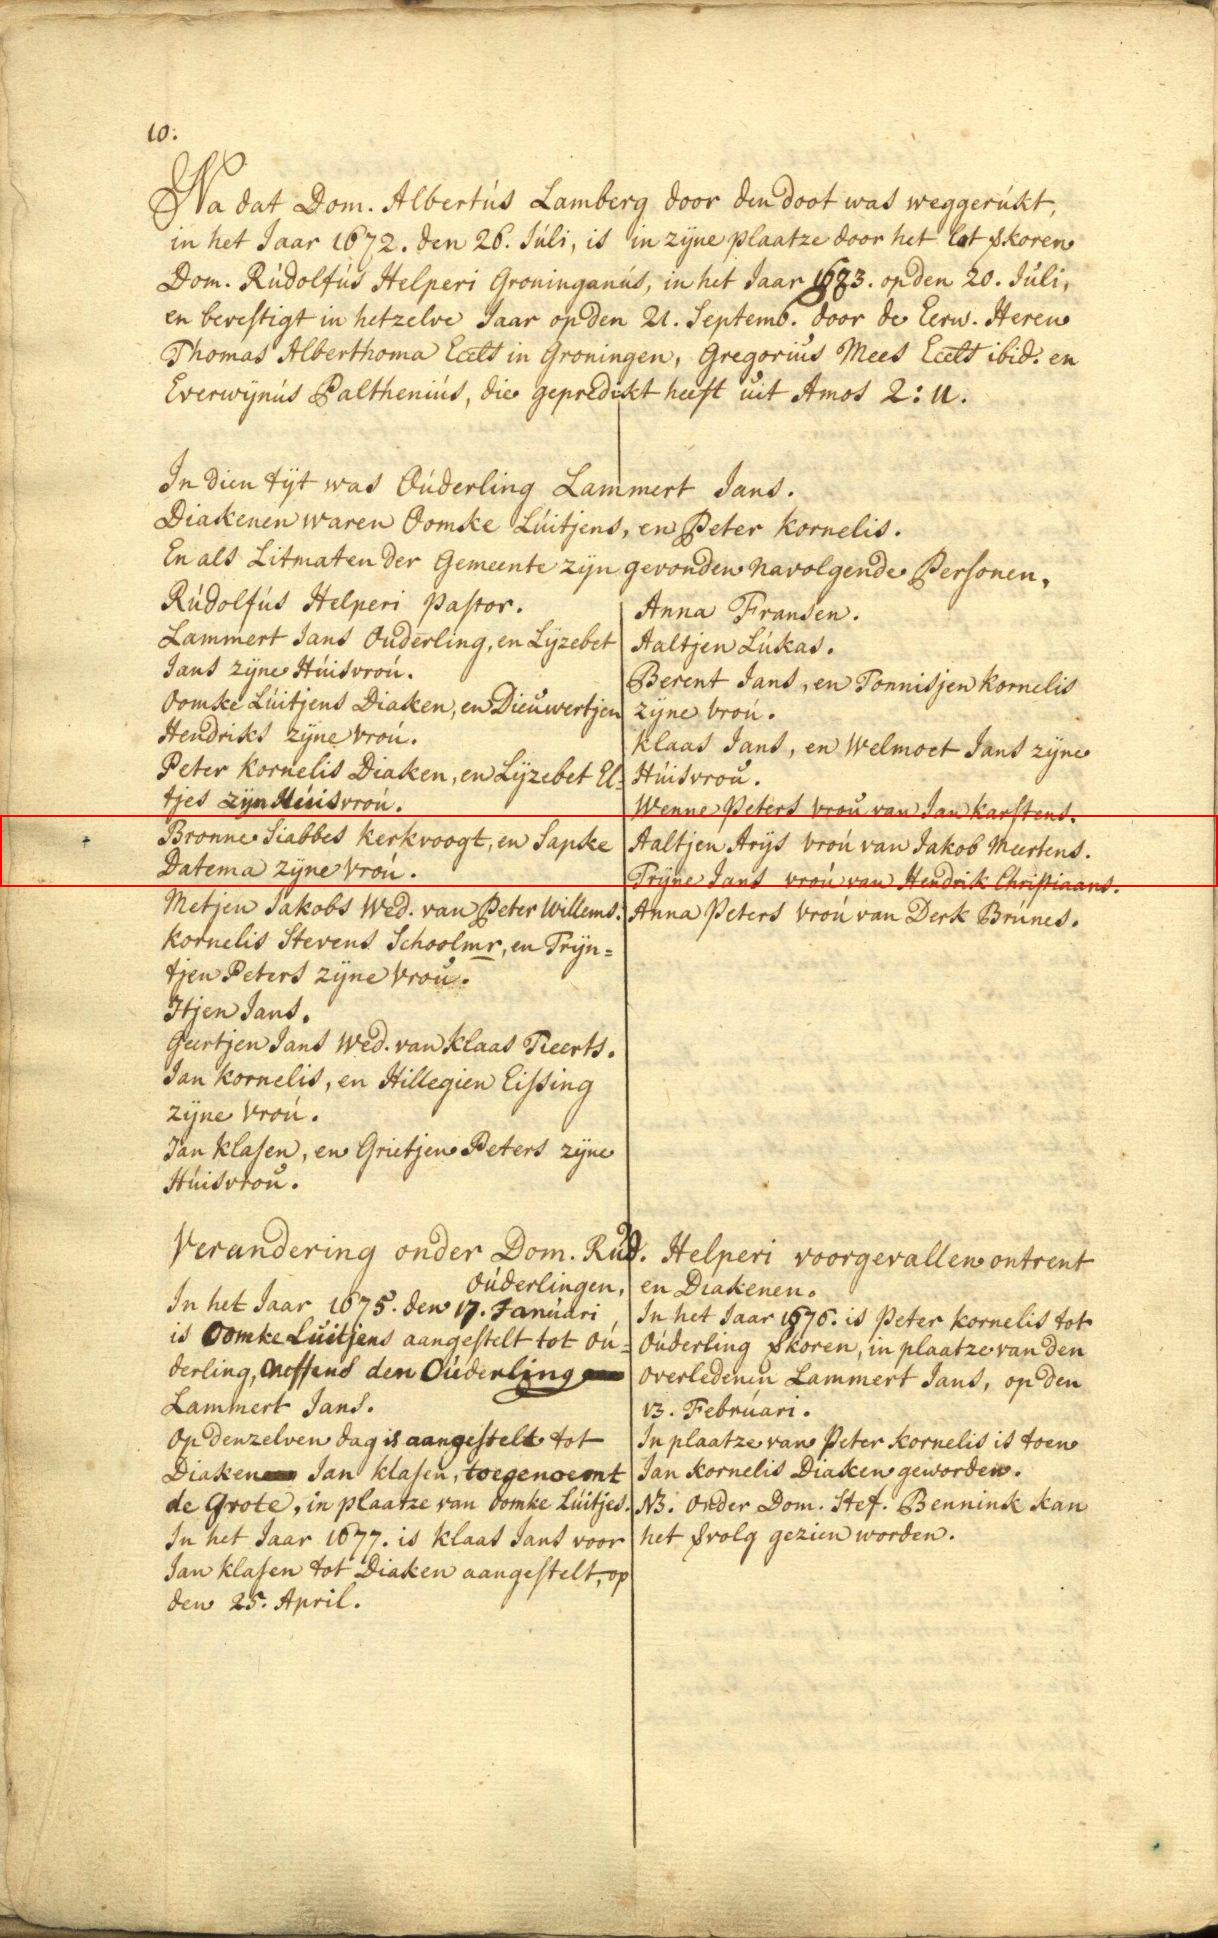 10.
Na dat Dom. Albertús Lamberg door den doot was weggerúkt,
in het Jaar 1672. den 26. Júli, is in zÿne plaatze door het Lot gkoren
Dom. Rúdolfús Helperi Groninganús, in het Jaar 1673. op den 20. Júli,
en bevestigt in hetzelve Jaar op den 21. Septemb. door de Eerw. Heren
Thomas Alberthoma Eccls in Groningen, Gregoriús Mees Eccls ibid. en
Everwÿnús Paltheniús, die gepredikt heeft uit Amos 2: 11.
In dien tÿt was Oúderling Lammert Jans.
Diakenen waren Oomke Lúitjens, en Peter Kornelis.
En als Litmaten der Gemeente zÿn gevonden navolgende Personen,
Rúdolfús Helperi Pastor.
Lammert Jans Ouderling, en Lÿzebet
Jans zÿne Húisvroú.
Oomke Lúitjens Diaken, en Dieuwertjen
Hendriks zÿne vroú.
Peter Kornelis Diaken, en Lÿzebet El=
tjes zÿn Húisvroú.
Bronne Siabbes kerkvoogt, en Sapke
Datema zÿne vroú.
Metjen Jakobs Wed. van Peter Willems.
Kornelis Stevens Schoolmr, en Trÿn=
tjen Peters zÿne vroú.
Itjen Jans.
Geertjen Jans Wed. van Klaas Tieerts.
Jan Kornelis, en Hillegien Eissing
zÿne vroú.
Jan Klasen, en Grietjen Peters zÿne
Húisvroú.
Anna Fransen.
Aaltjen Lúkas.
Berent Jans, en Tonnisjen Kornelis
zÿne vroú.
Klaas Jans, en Welmoet Jans zÿne
Húisvroú.
Wenne Peters vroú van Jan Karstens.
Aaltjen Arÿs vroú van Jakob Meertens.
Trÿne Jans vroú van Hendrik Christiaans.
Anna Peters vroú van Derk Brúnes.
Verandering onder Dom. Rúd. Helperi voorgevallen ontrent
Oúderlingen, en Diakenen.
In het Jaar 1675. den 17. Janúari
is Oomke Lúitjens aangestelt tot Oú=
derling, neffens den Oúderling
Lammert Jans.
Op denzelven dag is aangestelt tot
Diaken Jan Klasen, toegenoemt
de Grote, in plaatze van Oomke Lúitjes.
In het Jaar 1677. is Klaas Jans voor
Jan Klasen tot Diaken aangestelt, op
den 25. April.
In het Jaar 1676. is Peter Kornelis tot
Oúderling gkoren, in plaatze van den
overledenen Lammert Jans, op den
13. Febrúari.
In plaatze van Peter Kornelis is toen
Jan Kornelis Diaken geworden.
NB. Onder Dom. Stef. Bennink kan
het gvolg gezien worden.